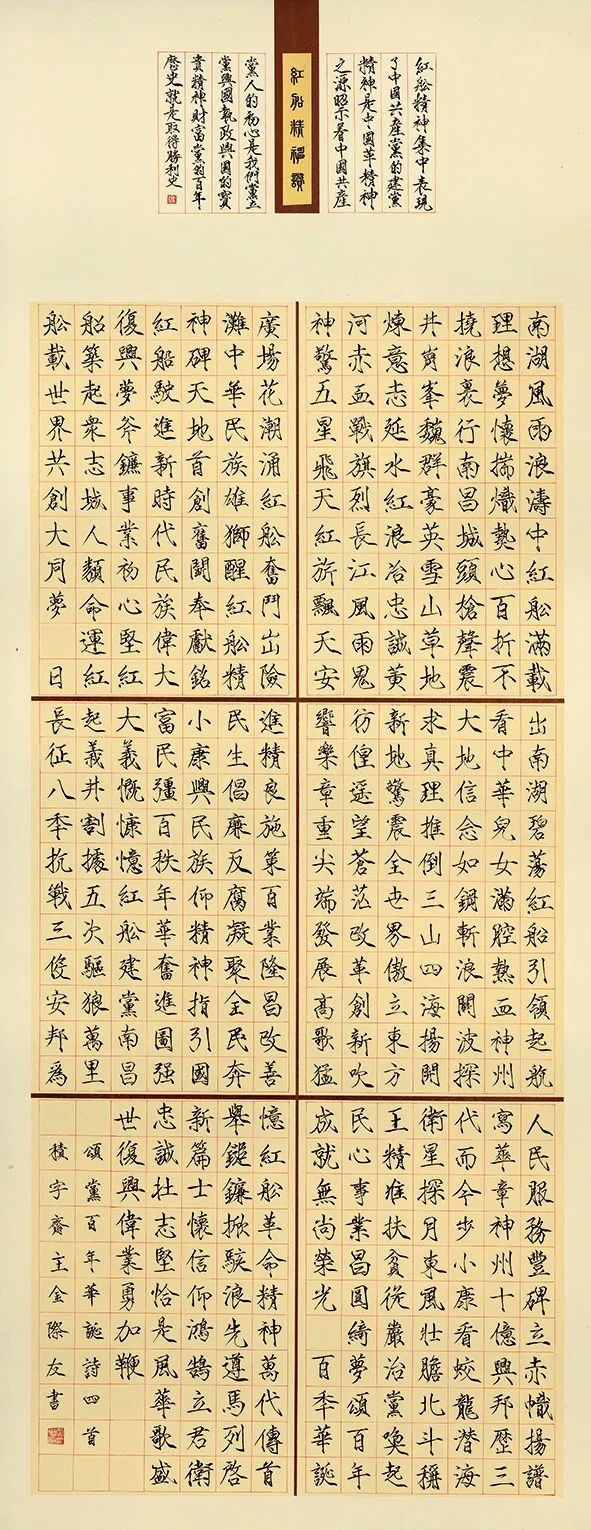 紅舩精神集中表現
了中國共產黨的建黨
精神是中國革精神
之源昭示著中國共產
紅船精神讚
黨人的初心是我們黨立
黨興國執政興國的寶
貴精神財富黨的百年
歷史就是取得勝利史
南湖風雨浪濤中紅舩滿載
理想夢懷揣熾熱心百折不
撓浪裹行南昌城頭槍聲震
井崗峯巍群豪英雪山草地
煉意志延水紅浪冶忠誠黃
河赤血戰旗烈長江風雨鬼
神驚五星飛天紅旂飄天安
廣場花潮涌紅舩奮鬥出險
灘中華民族雄獅醒紅舩精
神碑天地首創奮鬪奉獻銘
紅船駛進新時代民族偉大
復興夢斧鐮事業初心堅紅
船築起衆志城人類命運紅
舩載世界共創大同夢日
出南湖碧蕩紅船引領起航
看中華兒女滿腔熱血神州
大地信念如鋼斬浪闢波探
求真理推倒三山四海揚開
新地驚震全世界傲立東方
彷徨遥望蒼茫改革創新吹
響樂章重尖端發展高歌猛
進精良施策百業隆昌改善
民生倡廉反腐凝聚全民奔
小康興民族仰精神指引國
富民彊百秩年華奮進圖强
大義慨慷憶紅舩建黨南昌
起義井割據五次驅狼萬里
長征八秊抗戰三役安邦爲
人民服務豐碑立赤幟揚譜
寫華章神州十億興邦歷三
代而今步小康看蛟龍潛海
衛星探月東風壯膽北斗稱
王精准扶貧從嚴治黨喚起
民心事業昌圓綺夢頌百年
成就無尚榮光 百秊華誕
憶紅舩革命精神萬代傳首
舉鎚鐮掀駭浪先遵馬列啓
新篇士懷信仰鴻鵠立君衛
忠誠壯志堅恰是風華歌盛
世復興偉業勇加鞭
頌黨百年華誕詩四首
積字齋主金際友書